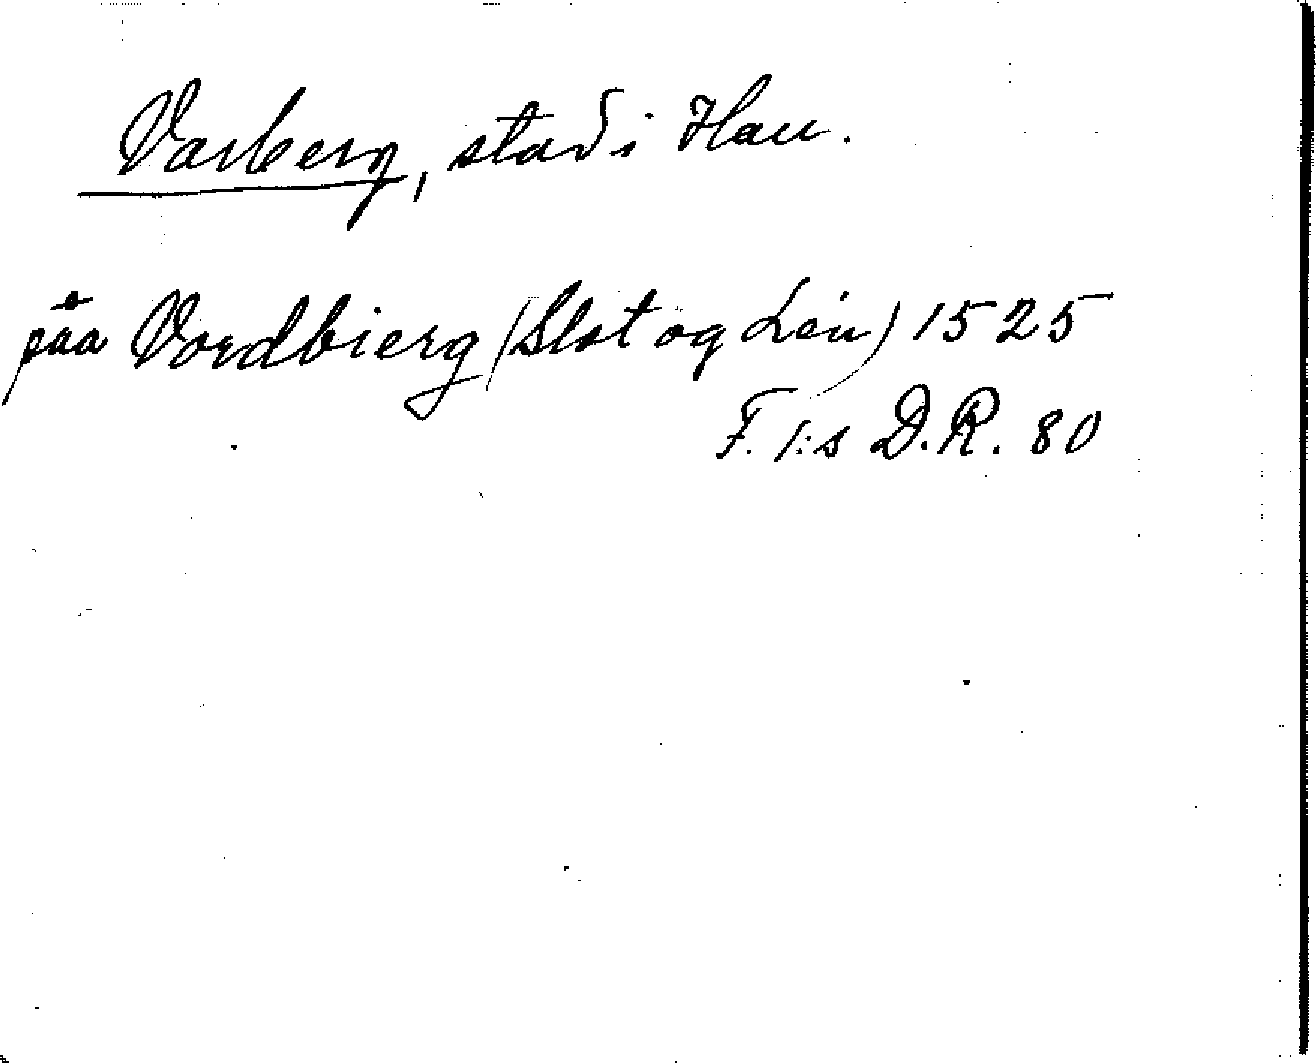 Varberg, stad i Hall.
påa Vordbierg (Slot og Len) 1525
F. I:s D.R. 80